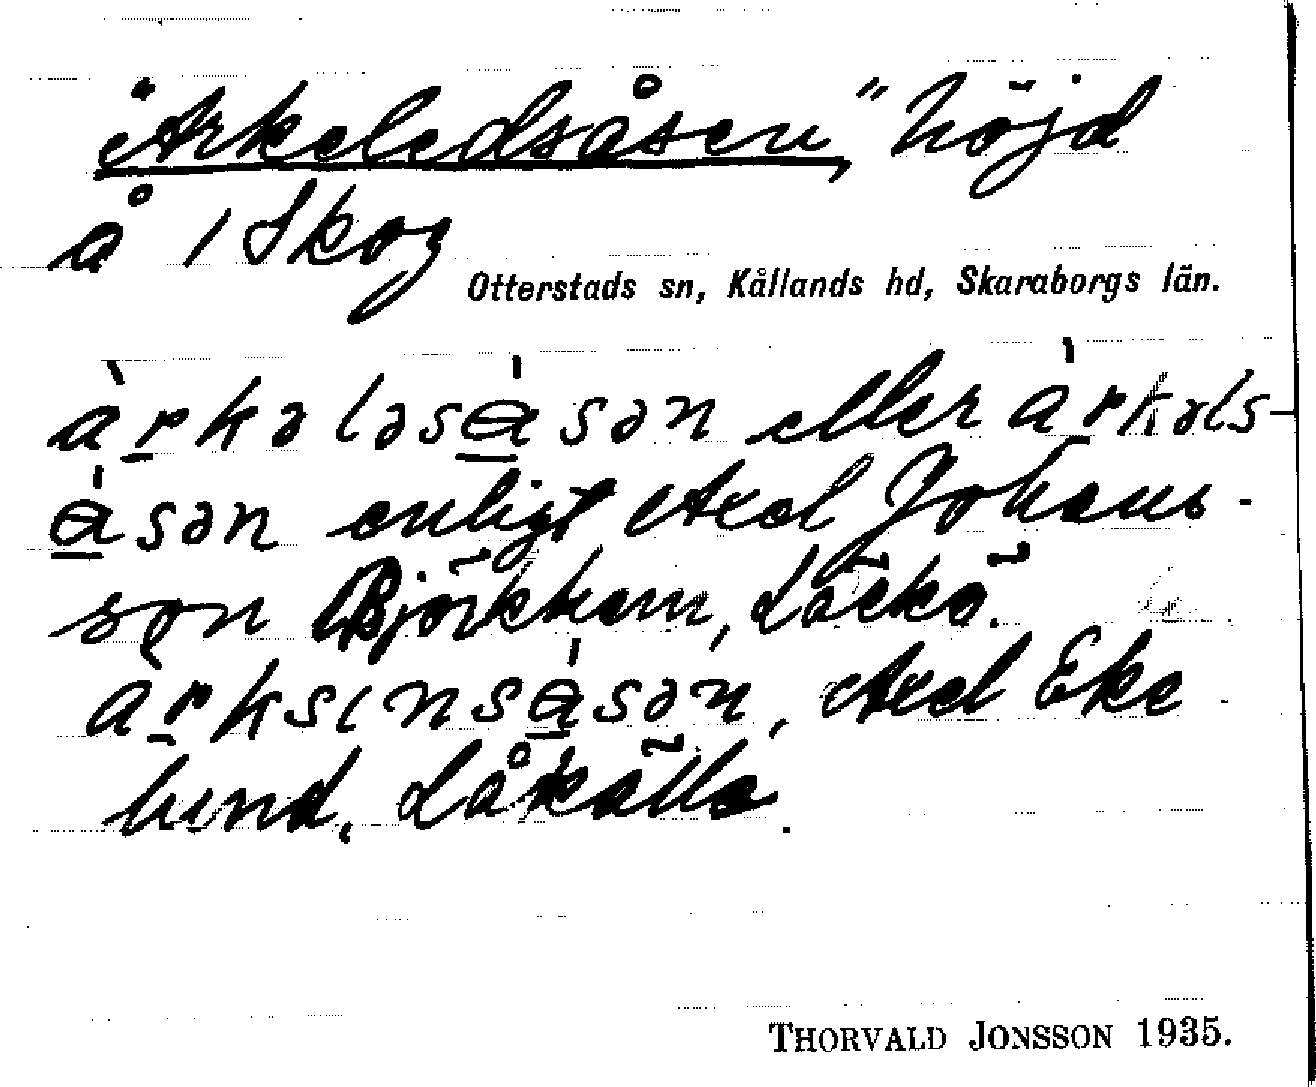 "Arkeledsåsen," höjd
å 1 Skog
Otterstads sn, Kållands hd, Skaraborgs län.
àrkələsåsən eller àrkəls-
åsən enligt Axel Johans-
son Björkhem, Läckö.
àrksinsåsən, Axel Eke
lund, Låkälla.
THORVALD JONSSON 1935.